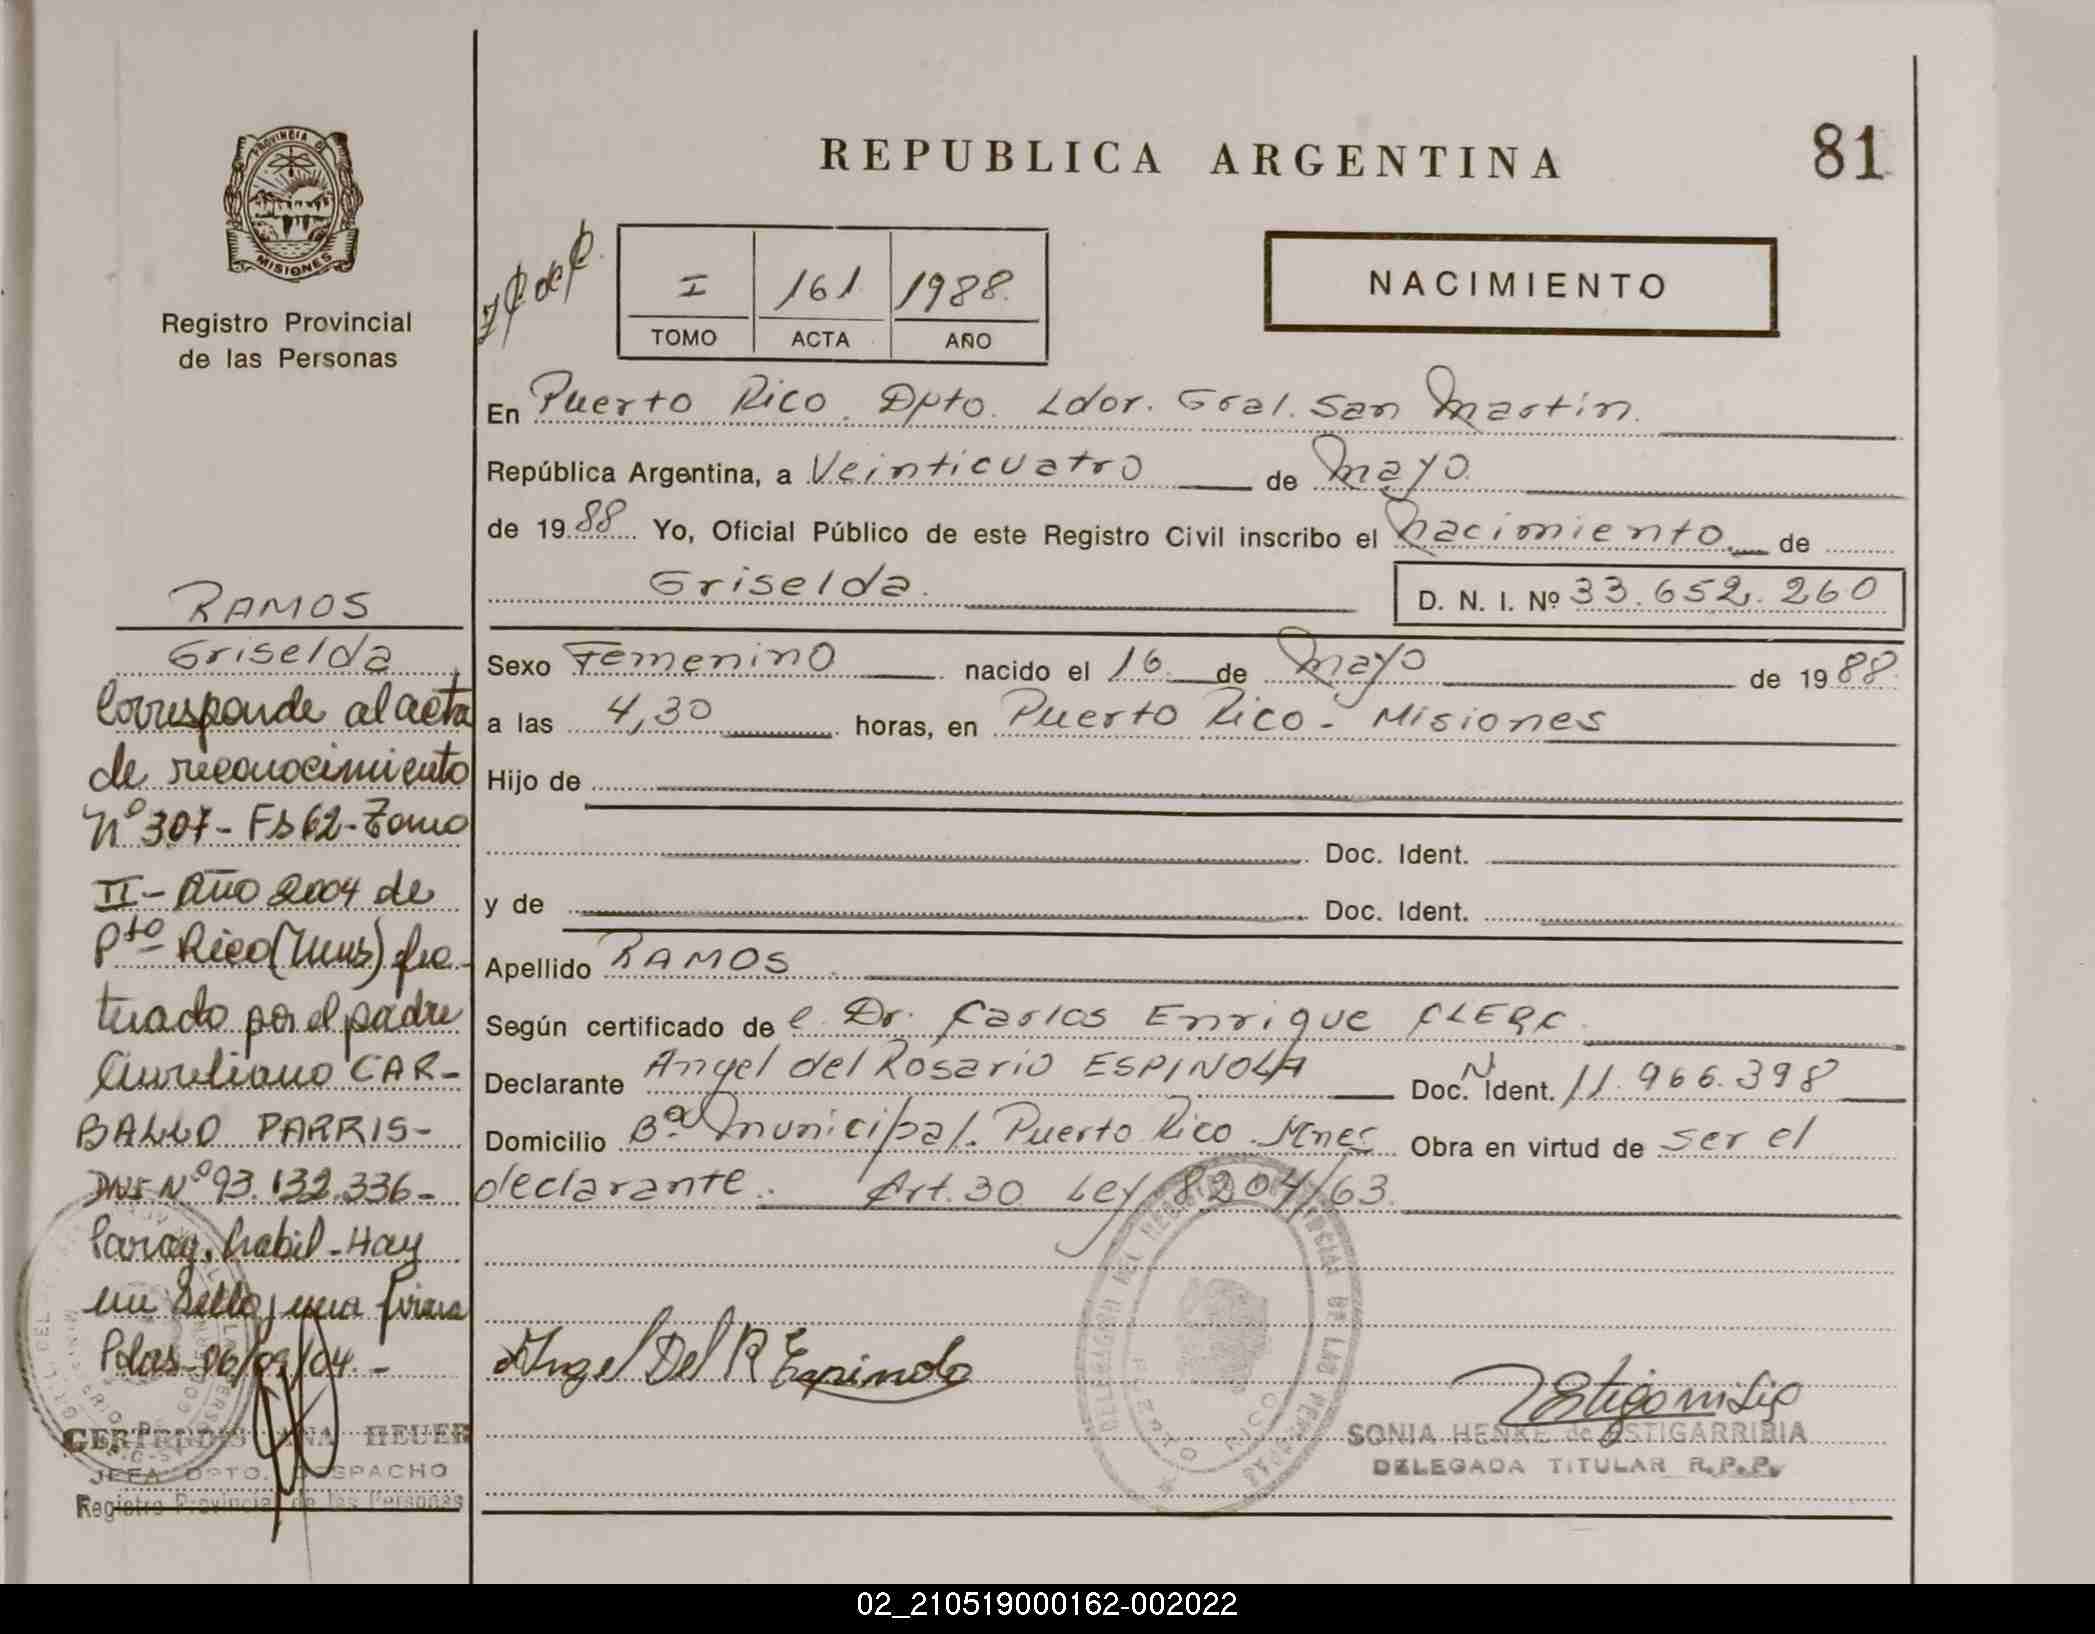 REPUBLICA ARGENTINA
81
PROVINCIA D
MISIONES
Registro Provincial
de las Personas
I 161 1988
TOMO ACTA AÑO
NACIMIENTO
En Puerto Rico. Dpto. Ldor. Gral. San Martin.
República Argentina, a Veinticuatro de Mayo
de 1988 Yo, Oficial Público de este Registro Civil inscribo el Nacimiento de
Griselda. D. N. I. Nº 33.652.260
Sexo Femenino nacido el 16 de Mayo de 1988
a las 4,30 horas, en Puerto Rico - Misiones
Hijo de
Doc. Ident.
y de Doc. Ident.
Apellido RAMOS
Según certificado de e. Dr. Carlos Enrique CLERC
Declarante Angel del Rosario ESPINOLA Doc. Ident. N 11.966.398
Domicilio Bº Municipal. Puerto Rico. Mnes Obra en virtud de ser el
declarante. Art. 30 Ley 8204/63.
Angel Del R Espinola
SONIA HENKE de ESTIGARRIBIA
DELEGADA TITULAR R.P.P.
DELEGACION DEL REGISTRO PROVINCIAL DE LAS PERSONAS
PUERTO RICO
RAMOS
Griselda
Corresponde al acta
de reconocimiento
Nº 307 - Fs 62 - Tomo
II - Año 2004 de
Pto Rico (Mnes) efec-
tuado por el padre
Aureliano CAR-
BALLO PARRIS -
DNI Nº 93.132.336 -
Parag. habil - Hay
un Sello, una firma
Pdas 06/09/04. -
GERTRUDIS ANA HEUER
JEFA DPTO. DESPACHO
Registro Provincial de las Personas
02_210519000162-002022